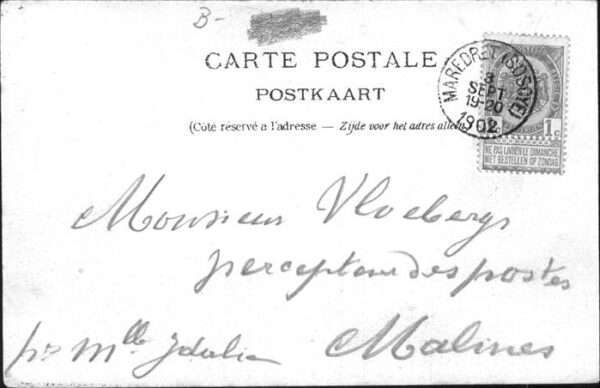 B-
CARTE POSTALE
POSTKAART
(Côté réservé a l'adresse — Zijde voor het adres alleen
MAREDRET (SOSOYE)
3
SEPT
19-20
1902
1c 1c
NE PAS LIVRER LE DIMANCHE
NIET BESTELLEN OP ZONDAG
Monsieur Vloebergs
percepteur des postes
pr Mlle Idalie Malines